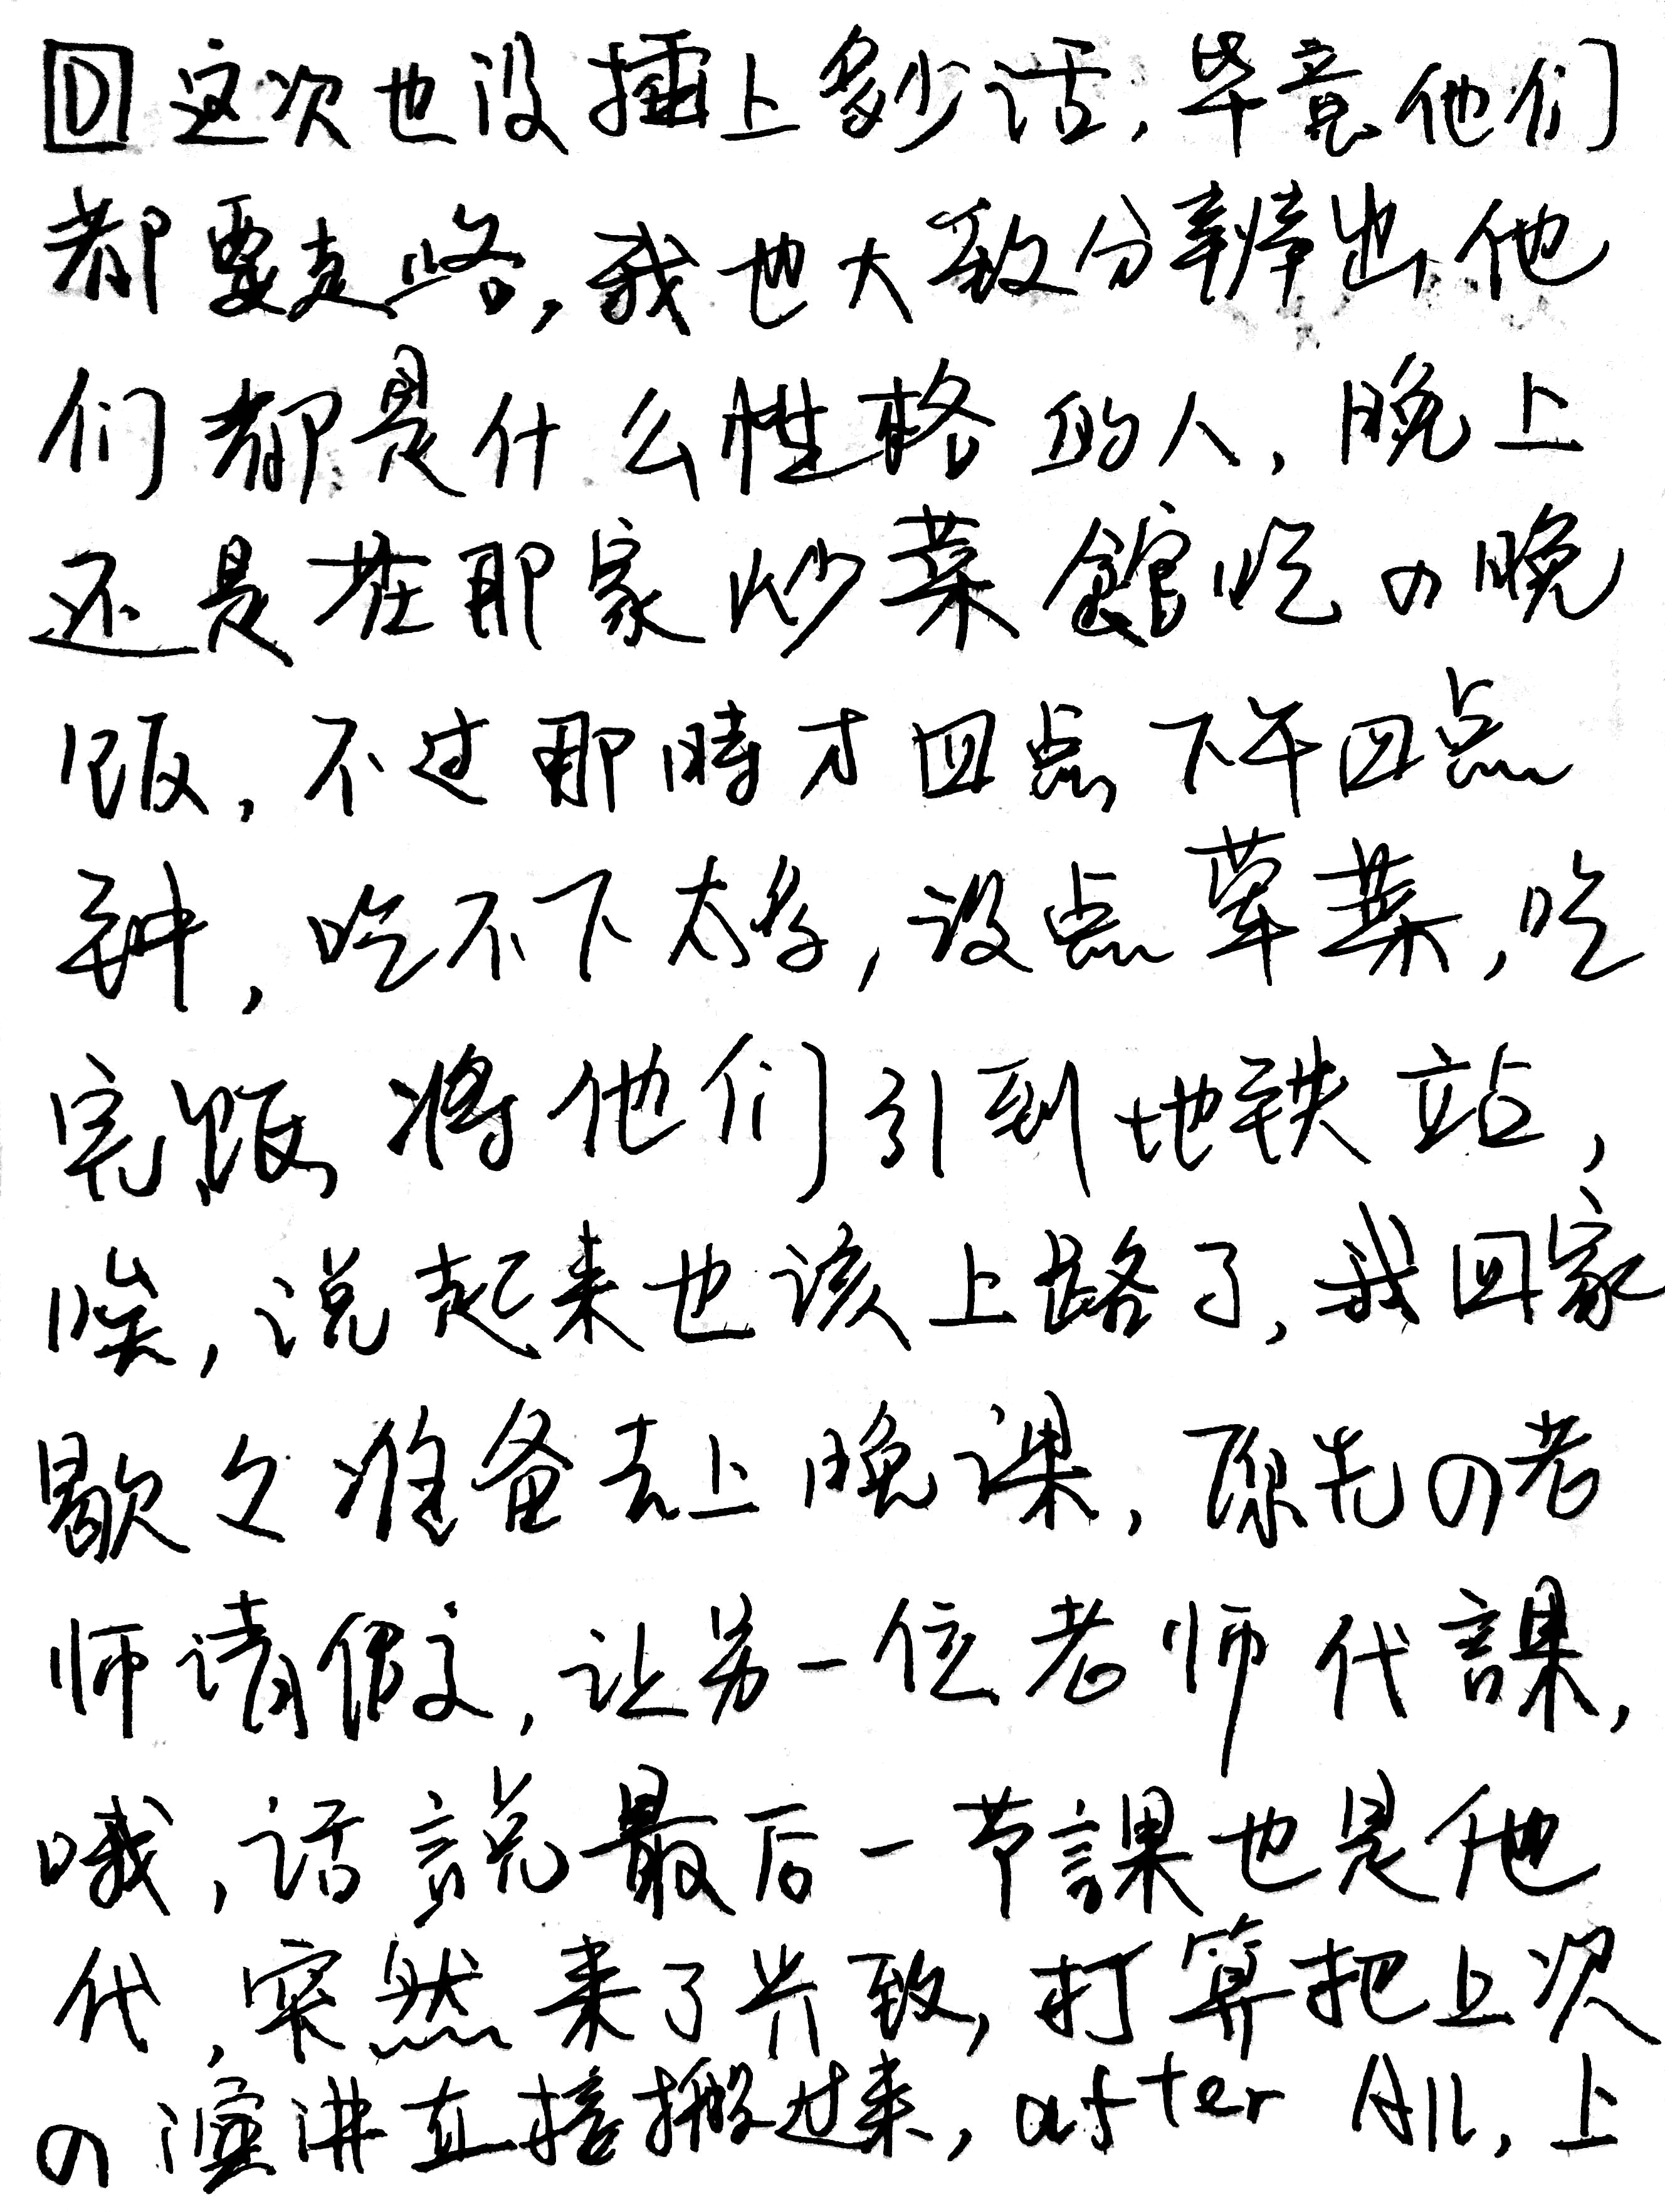 D 这次也没插上多少话，毕竟他们
都要走咯，我也大致分辨出他
们都是什么性格的人，晚上
还是在那家炒菜館吃の晚
饭，不过那時才四点，下午四点
钟，吃不下太多，没点荤菜，吃
完饭，将他们引到地铁站，
唉，说起来也该上路了，我回家
歇々准备去上晚课，原先の老
师请假，让另一位老师代課，
哦，话說最后一节課也是他
代，突然来了兴致，打算把上次
の演讲直接搬过来，after All，上